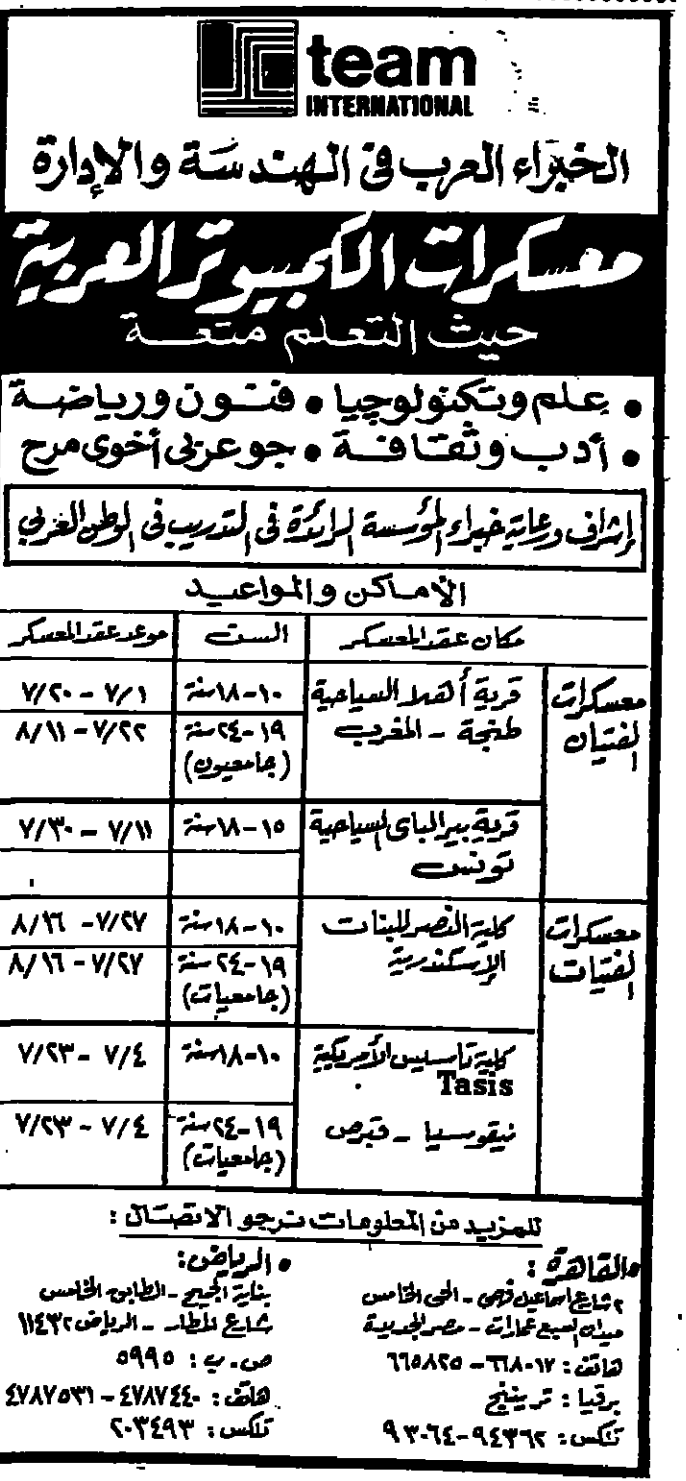 team
INTERNATIONAL
الخبراء العرب في الهندسة والإدارة
معسكرات الكمبيوتر العربية
حيث التعلم متعة
• علم وتكنولوجيا • فنون ورياضة
• أدب وثقافة • جو عربي أخوي مرح
إشراف ورعاية خبراء المؤسسة الرائدة في التدريب في الوطن العربي
الأماكن والمواعيد
مكان عقد المعسكر السن موعد عقد المعسكر
معسكرات الفتيان
قرية أهلا السياحية طنجة - المغرب
١٠-١٨ سنة ٧/١ - ٧/٢٠
١٩-٢٤ سنة (جامعيون) ٧/٢٢ - ٨/١١
قرية بير الباي السياحية تونس
١٥-١٨ سنة ٧/١١ - ٧/٣٠
معسكرات الفتيات
كلية النصر للبنات الإسكندرية
١٠-١٨ سنة ٧/٢٧ - ٨/١٦
١٩-٢٤ سنة (جامعيات) ٧/٢٧ - ٨/١٦
كلية تاسيس الأمريكية Tasis
نيقوسيا - قبرص
١٠-١٨ سنة ٧/٤ - ٧/٢٣
١٩-٢٤ سنة (جامعيات) ٧/٤ - ٧/٢٣
للمزيد من المعلومات نرجو الاتصال :
• القاهرة :
٢ شارع اسماعيل فهمي - الحي الخامس
ميدان السبع عمارات - مصر الجديدة
هاتف : ٦٦٨٠١٧ - ٦٦٥٨٢٥
برقيا : ترينينج
تلكس : ٩٤٣٦٢ - ٩٣٠٦٤
• الرياض :
بناية - الطابق الخامس
شارع المطار - الرياض ١١٤٣٢
ص . ب : ٥٩٩٥
هاتف : ٤٧٨٧٤٤٠ - ٤٧٨٧٥٣١
تلكس : ٢٠٣٤٩٣